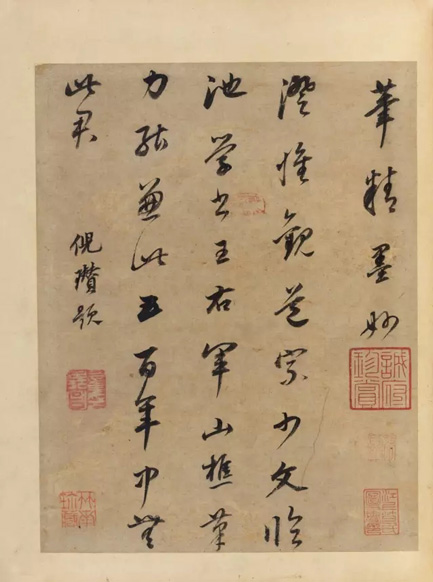 筆精墨妙
澄懷觀道宗少文臨
池学書王右軍山樵筆
力能兼此五百年中無
此君
倪瓚題